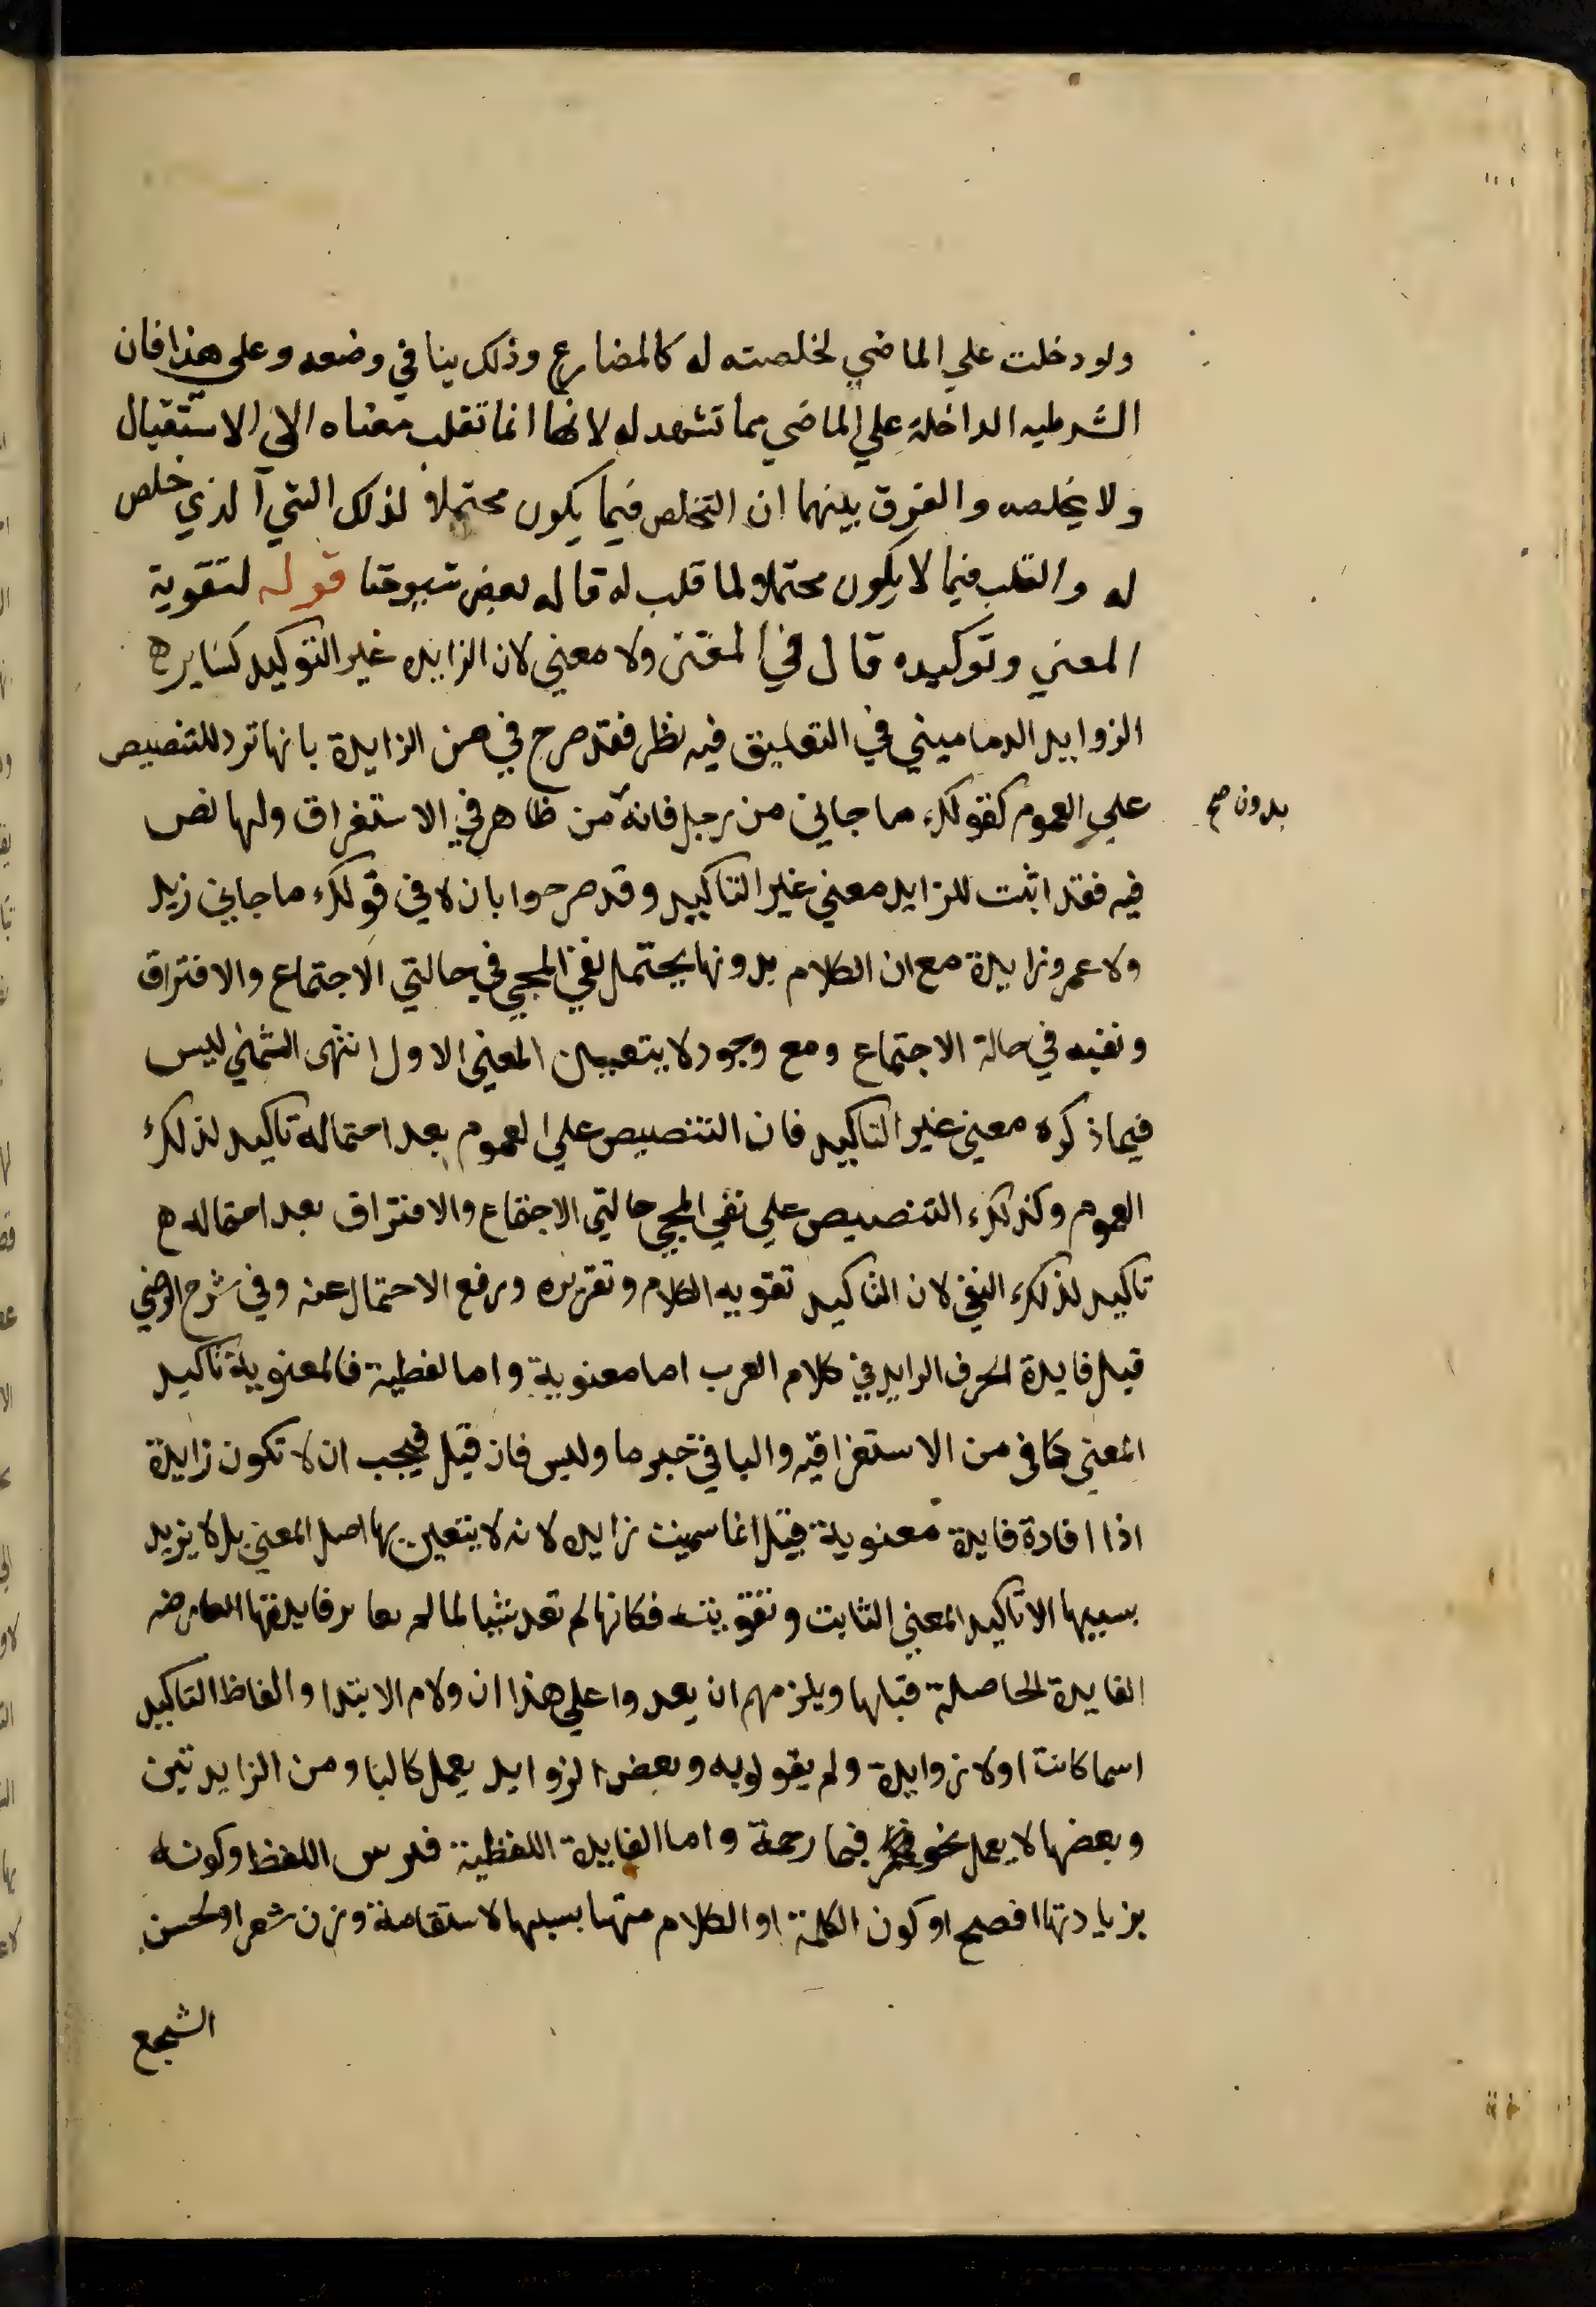 ولو دخلت علي الماضي لخلصته له كالمضارع وذلك ينافي وضعه وعلي هذا فان
الشرطيه الداخلة علي الماضي مما تشهد له لانها انما تقلب معناه الي الاستقبال
ولا يخلصه والفرق بينهما ان التخلص فيما يكون محتملا لذلك الشي الذي خلص
له والقلب فيما لا يكون محتملا لما قلب له قاله بعض شيوخنا قوله لتقوية
المعني وتوكيده قال في المغني ولا معني لان الزايده غير التوكيد كساير
الزوايد الدماميني في التعليق فيه نظر فقد صرح في من الزايدة بانها ترد للتنصيص
علي العموم كقولك ما جاني من رجل فانه من ظاهر في الاستغراق ولها نص
بدون صح
فيه فقد اثبت للزايد معني غير التاكيد وقد صرحوا بان لا في قولك ما جاني زيد
ولا عمرو زايدة مع ان الكلام بدونها يحتمل نفي المجي في حالتي الاجتماع والافتراق
ونفيه في حالة الاجتماع ومع وجود لا يتعين المعني الاول انتهى الشمني ليس
فيما ذكره معني غير التاكيد فان التنصيص علي العموم بعد احتماله تاكيد لذلك
العموم وكذلك التنصيص علي نفي المجي حالتي الاجتماع والافتراق بعد احتماله
تاكيد لذلك النفي لان التاكيد تقويه الكلام وتقريره ورفع الاحتمال عنه وفي شرح الرضي
قيل فايدة الحرف الزايد في كلام العرب اما معنوية واما لفظية فالمعنوية تاكيد
المعني كما في من الاستغراقيه والبا في خبر ما وليس فان قيل فيجب ان لا تكون زايدة
اذا افادة فايدة معنوية قيل انما سميت زايده لانه لا يتعين بها اصل المعني بل لا يزيد
بسببها الا تاكيد المعني الثابت وتقويته فكانها لم تفد شيا لما لم تغاير فايدتها العارضه
الفايدة الحاصلة قبلها ويلزمهم ان يعدوا علي هذا ان ولام الابتدا والفاظ التاكيد
اسما كانت اولا زوايدة ولم يقولوا به وبعض الزوايد يعمل كالبا ومن الزايدتين
وبعضها لا يعمل نحو فبما رحمة واما الفايدة اللفظية فلرس اللفظ وكونه
بزيادتها افصح او كون الكلمة او الكلام متهيا بسببها لاستقامة وزن شعر او لحسن
السجع